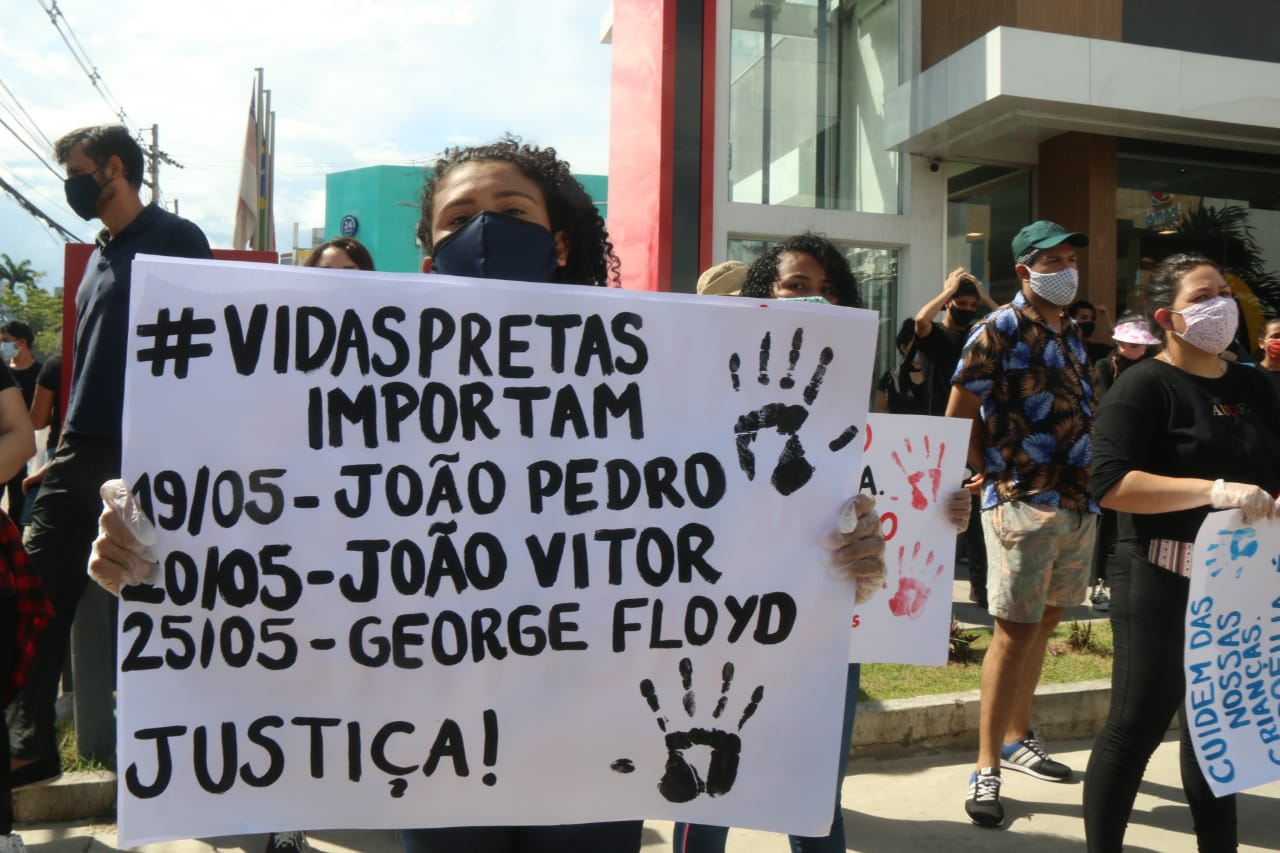 #VIDASPRETAS
IMPORTAM
19/05-JOÃO PEDRO
20/05-JOÃO VITOR
25/05-GEORGE FLOYD
JUSTIÇA!
CUIDEM DAS
NOSSAS
CRIANÇAS.
24